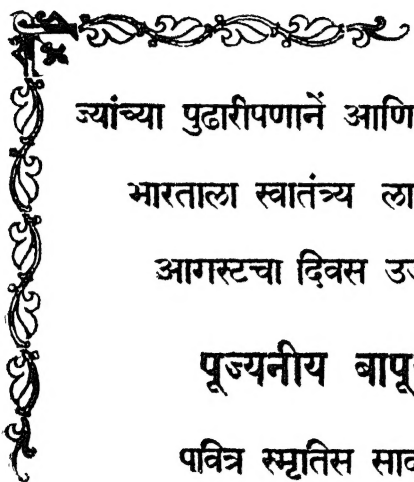 ज्यांच्या पुढारीपणानें आणि
भारताला स्वातंत्र्य
आगस्टचा दिवस
पूज्यनीय
पवित्र स्मृतिस